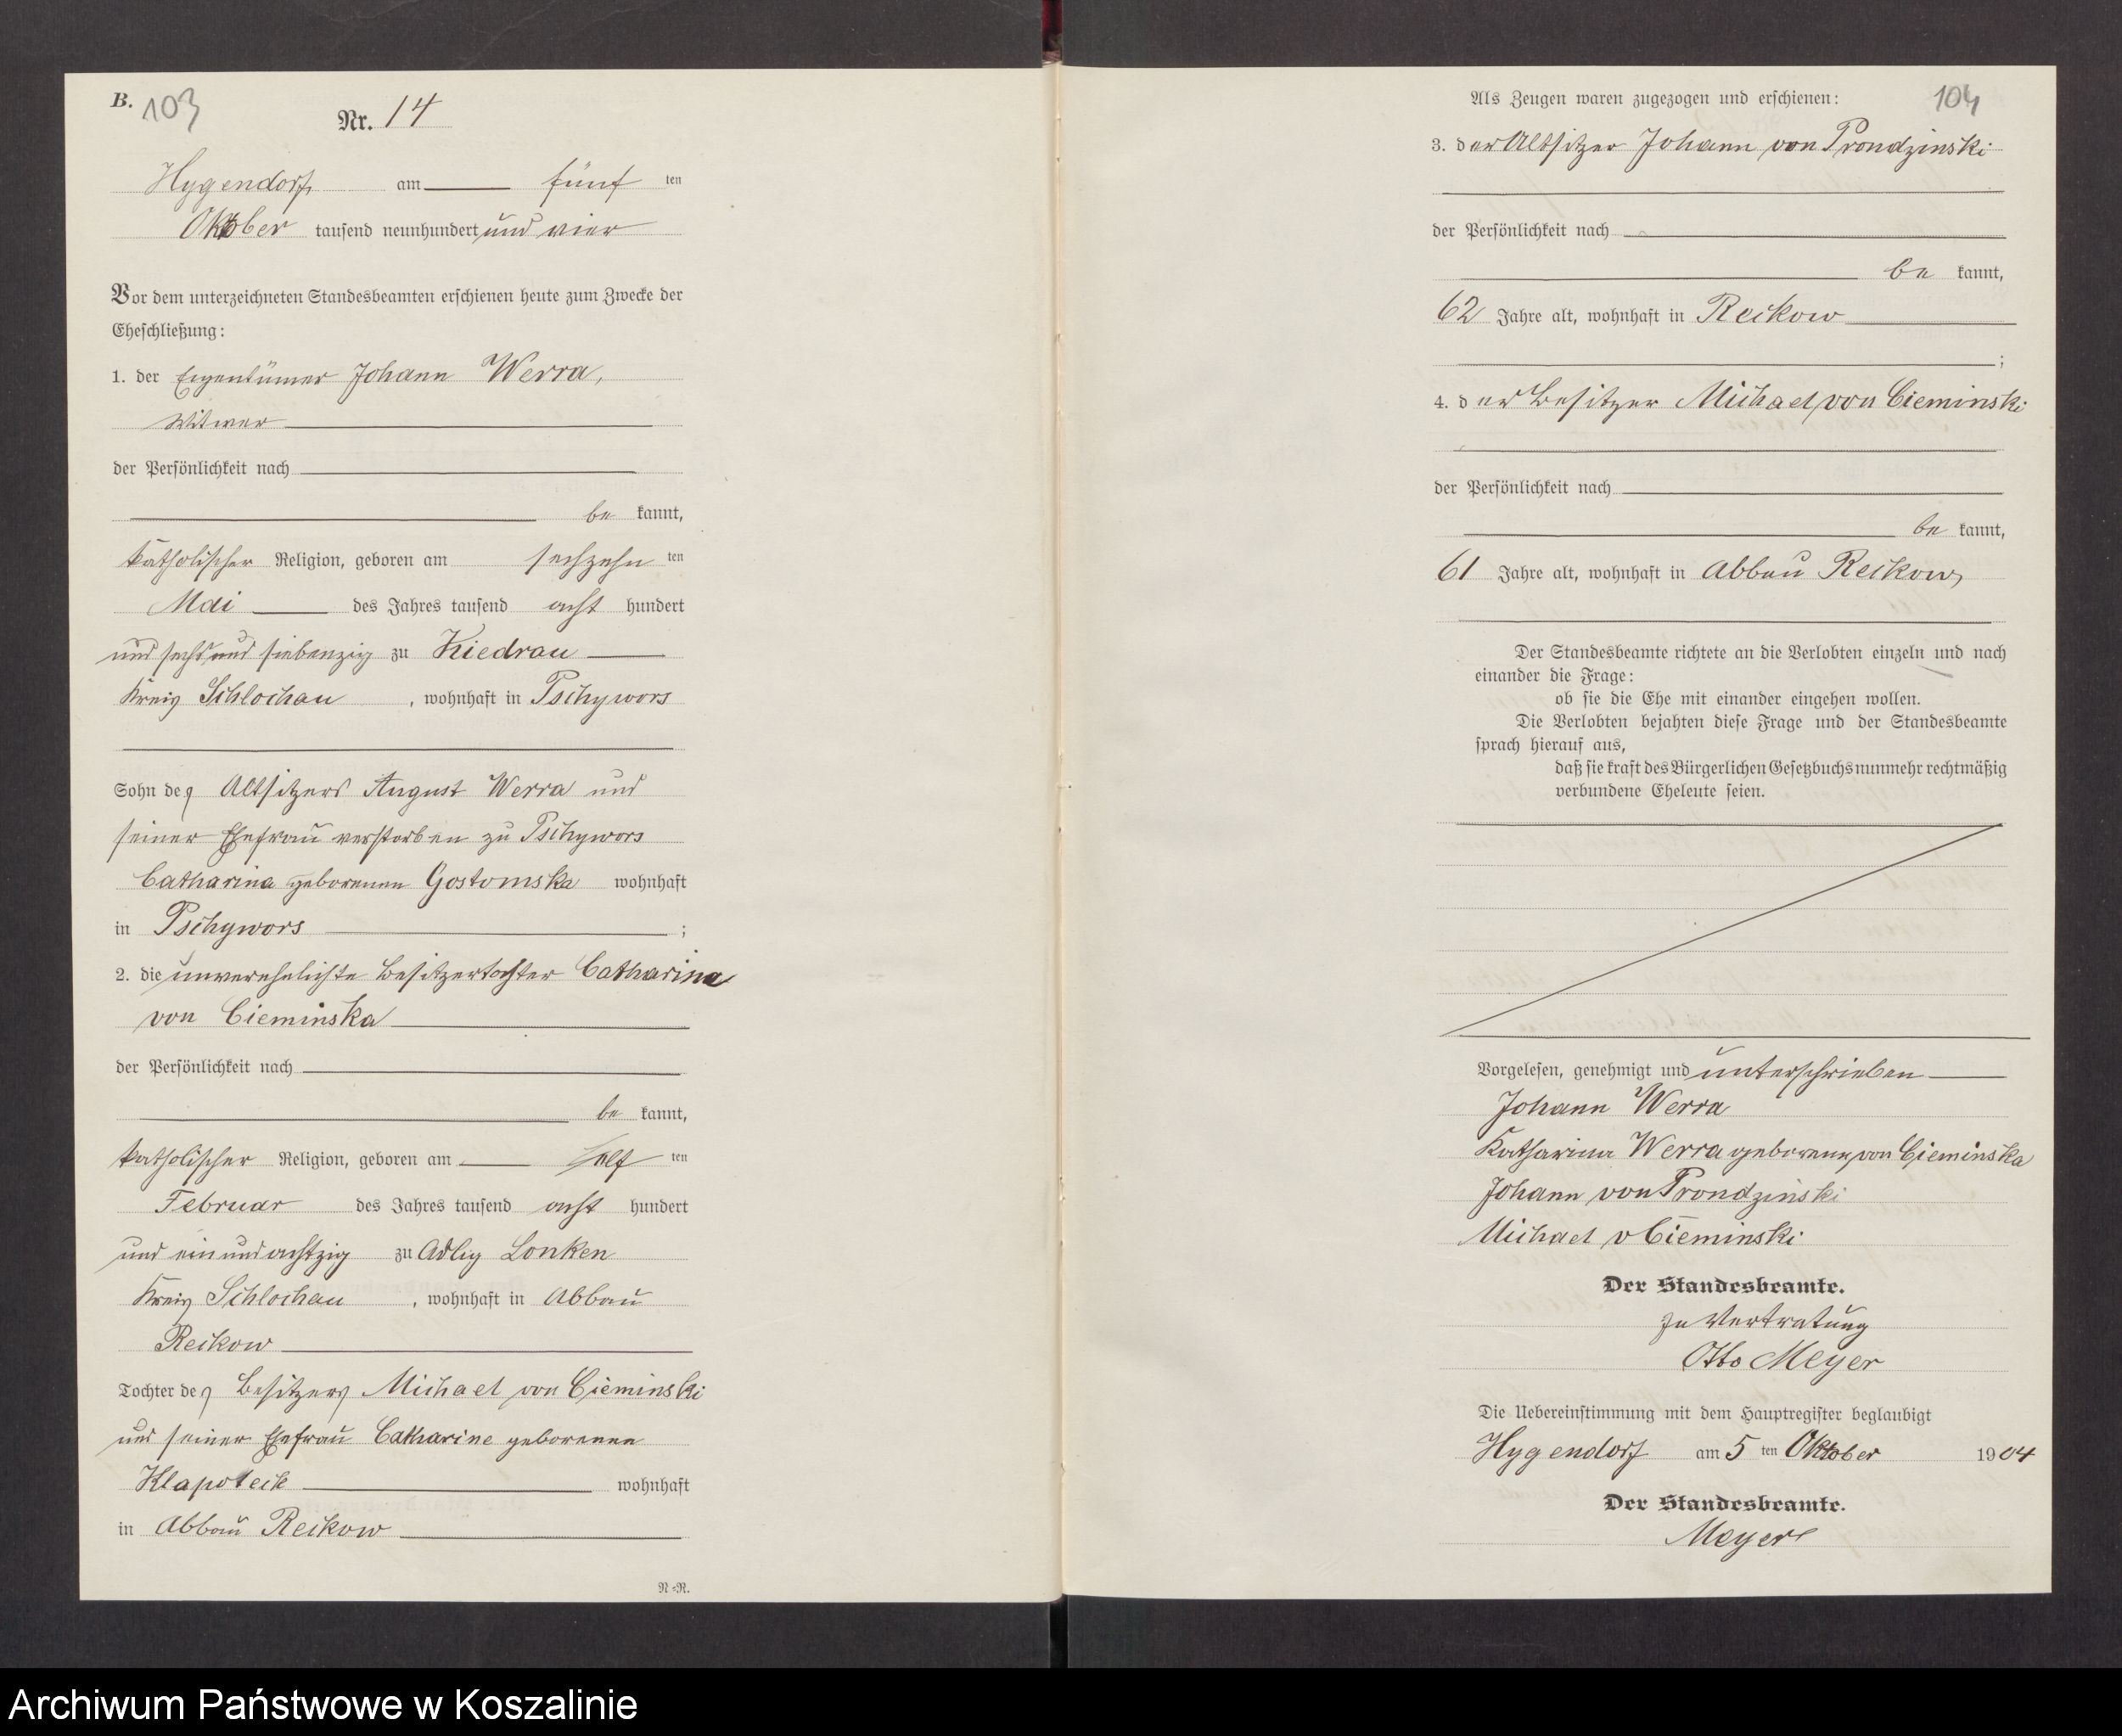 B. 103
Nr. 14
Hygendorf, am fünf ten
Oktober tausend neunhundert und vier
Vor dem unterzeichneten Standesbeamten erschienen heute zum Zwecke der
Eheschließung:
1. der Eigentümer Johann Werra,
Witwer
der Persönlichkeit nach
be kannt,
katholischer Religion, geboren am sechzehn ten
Mai des Jahres tausend acht hundert
und sechs und siebenzig zu Kiedrau
Kreis Schlochau, wohnhaft in Pschywors
Sohn des Altsitzers August Werra und
seiner Ehefrau verstorben zu Pschywors
Catharina geborenen Gostomska wohnhaft
in Pschywors ;
2. die unverehelichte Besitzertochter Catharina
von Cieminska
der Persönlichkeit nach
be kannt,
katholischer Religion, geboren am elf ten
Februar des Jahres tausend acht hundert
und ein und achtzig zu Adlig Lonken
Kreis Schlochau, wohnhaft in Abbau
Reikow
Tochter des Besitzers Michael von Cieminski
und seiner Ehefrau Catharine geborenen
Klapoteck wohnhaft
in Abbau Reikow
N=R.
Als Zeugen waren zugezogen und erschienen: 104
3. der Altsitzer Johann von Prondzinski
der Persönlichkeit nach
be kannt,
62 Jahre alt, wohnhaft in Reikow
;
4. der Besitzer Michael von Cieminski
der Persönlichkeit nach
be kannt,
61 Jahre alt, wohnhaft in Abbau Reikow
Der Standesbeamte richtete an die Verlobten einzeln und nach
einander die Frage:
ob sie die Ehe mit einander eingehen wollen.
Die Verlobten bejahten diese Frage und der Standesbeamte
sprach hierauf aus,
daß sie kraft des Bürgerlichen Gesetzbuchs nunmehr rechtmäßig
verbundene Eheleute seien.
Vorgelesen, genehmigt und unterschrieben
Johann Werra
Katharina Werra geborene von Cieminska
Johann von Prondzinski
Michael v Cieminski
Der Standesbeamte.
In Vertretung
Otto Meyer
Die Uebereinstimmung mit dem Hauptregister beglaubigt
Hygendorf am 5 ten Oktober 1904
Der Standesbeamte.
Meyer
Archiwum Państwowe w Koszalinie